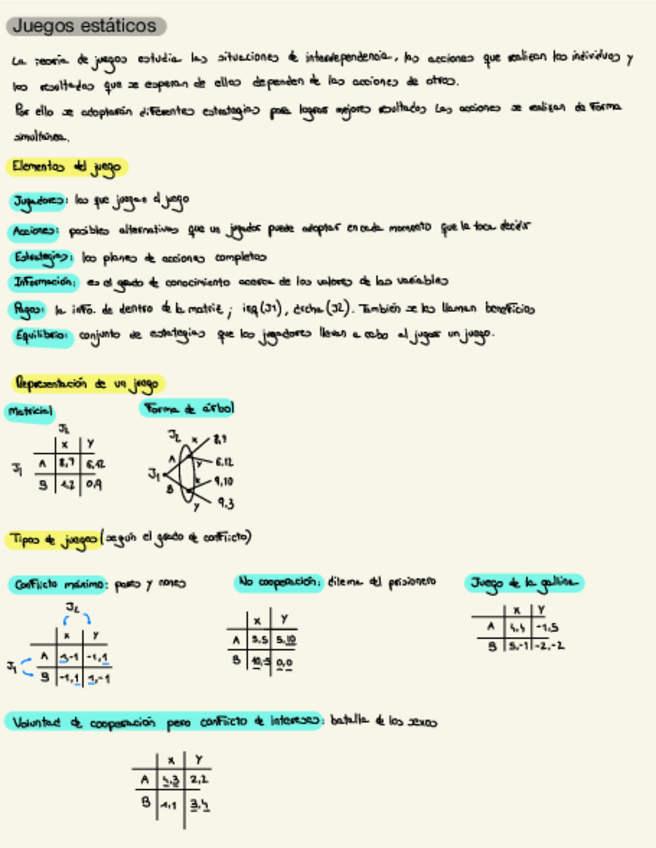 Juegos estáticos
La teoría de juegos estudia las situaciones de interdependencia, las acciones que realizan los individuos y
los resultados que se esperan de ellas dependen de las acciones de otros.
Por ello se adoptarán diferentes estrategias para lograr mejores resultados Las acciones se realizan de forma
simultánea.
Elementos del juego
Jugadores: los que juegan el juego
Acciones: posibles alternativas que un jugador puede adoptar en cada momento que le toca decidir
Estrategias: los planes de acciones completos
Información: es el grado de conocimiento acerca de los valores de las variables
Pagos: la info. de dentro de la matriz; izq (J1), dcha (J2). También se les llaman beneficios
Equilibrio: conjunto de estrategias que los jugadores llevan a cabo al jugar un juego.
Representación de un juego
Matricial
Forma de árbol
J2
X Y
J1 A 8,9 6,12
B
J2
X 8,9
A Y 6,12
J1
B X 9,10
Y 9,3
Tipos de juegos (según el grado de conflicto)
Conflicto máximo: pares y nones
No cooperación: dilema del prisionero
Juego de la gallina
J2
X Y
J1 A 1,-1 -1,1
B -1,1 1,-1
X Y
A 5,5 5,10
B 0,0
X Y
A 4,4 -1,5
B 5,-1 -2,-2
Voluntad de cooperación pero conflicto de intereses: batalla de los sexos
X Y
A 4,3 2,2
B 1,1 3,4